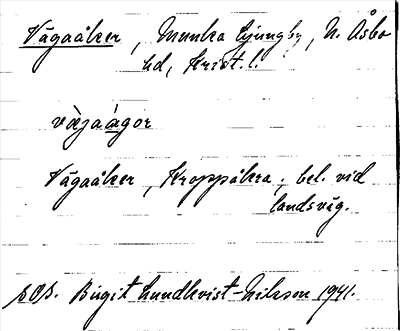 Vägaåker, Munka Ljungby, N. Åsbo
hd, Krist. l.
vàjaágor
Vägaåker, Kroppåkra; bel. vid
landsväg.
SOS. Birgit Lundkvist-Nilsson 1941.